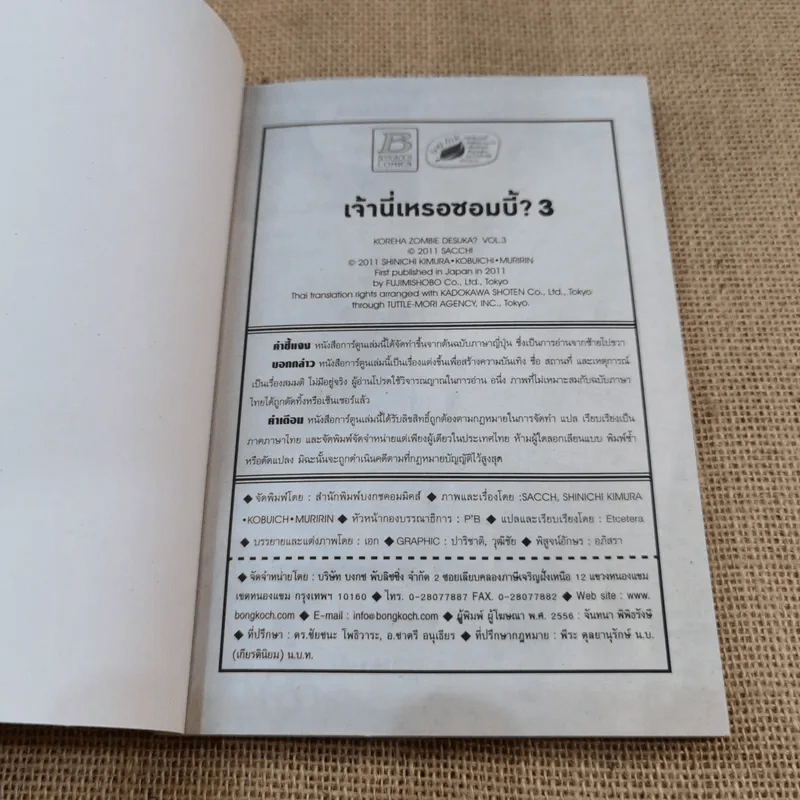 B
BONGKOCH
COMICS
เจ้านี่เหรอซอมบี้? 3
KOREHA ZOMBIE DESUKA? VOL.3
© 2011 SACCHI
© 2011 SHINICHI KIMURA•KOBUICHI•MURIRIN
First published in Japan in 2011
by FUJIMISHOBO Co., Ltd., Tokyo
Thai translation rights arranged with KADOKAWA SHOTEN Co., Ltd., Tokyo
through TUTTLE-MORI AGENCY, INC., Tokyo.
คำชี้แจง หนังสือการ์ตูนเล่มนี้ได้จัดทำขึ้นจากต้นฉบับภาษาญี่ปุ่น ซึ่งเป็นการอ่านจากซ้ายไปขวา
บอกกล่าว หนังสือการ์ตูนเล่มนี้เป็นเรื่องแต่งขึ้นเพื่อสร้างความบันเทิง ชื่อ สถานที่ และเหตุการณ์
เป็นเรื่องสมมติ ไม่มีอยู่จริง ผู้อ่านโปรดใช้วิจารณญาณในการอ่าน อนึ่ง ภาพที่ไม่เหมาะสมกับฉบับภาษา
ไทยได้ถูกตัดทิ้งหรือเซ็นเซอร์แล้ว
คำเตือน หนังสือการ์ตูนเล่มนี้ได้รับลิขสิทธิ์ถูกต้องตามกฎหมายในการจัดทำ แปล เรียบเรียงเป็น
ภาคภาษาไทย และจัดพิมพ์จัดจำหน่ายแต่เพียงผู้เดียวในประเทศไทย ห้ามผู้ใดลอกเลียนแบบ พิมพ์ซ้ำ
หรือดัดแปลง มิฉะนั้นจะถูกดำเนินคดีตามที่กฎหมายบัญญัติไว้สูงสุด
◆ จัดพิมพ์โดย : สำนักพิมพ์บงกชคอมมิคส์ ◆ ภาพและเรื่องโดย :SACCH, SHINICHI KIMURA
•KOBUICH•MURIRIN ◆ หัวหน้ากองบรรณาธิการ : P"B ◆ แปลและเรียบเรียงโดย : Etcetera
◆ บรรยายและแต่งภาพโดย : เอก ◆ GRAPHIC : ปาริชาติ, วุฒิชัย ◆ พิสูจน์อักษร : อภิสรา
◆ จัดจำหน่ายโดย : บริษัท บงกช พับลิชชิ่ง จำกัด 2 ซอยเลียบคลองภาษีเจริญฝั่งเหนือ 12 แขวงหนองแขม
เขตหนองแขม กรุงเทพฯ 10160 ◆ โทร. 0-28077887 FAX. 0-28077882 ◆ Web site : www.
bongkoch.com ◆ E-mail : info@bongkoch.com ◆ ผู้พิมพ์ ผู้โฆษณา พ.ศ. 2556 : จันทนา พิพิธรังษี
◆ ที่ปรึกษา : ดร.ชัยชนะ โพธิวาระ, อ.ชาตรี อนุเธียร ◆ ที่ปรึกษากฎหมาย : พีระ ดุลยานุรักษ์ น.บ.
(เกียรตินิยม) น.บ.ท.